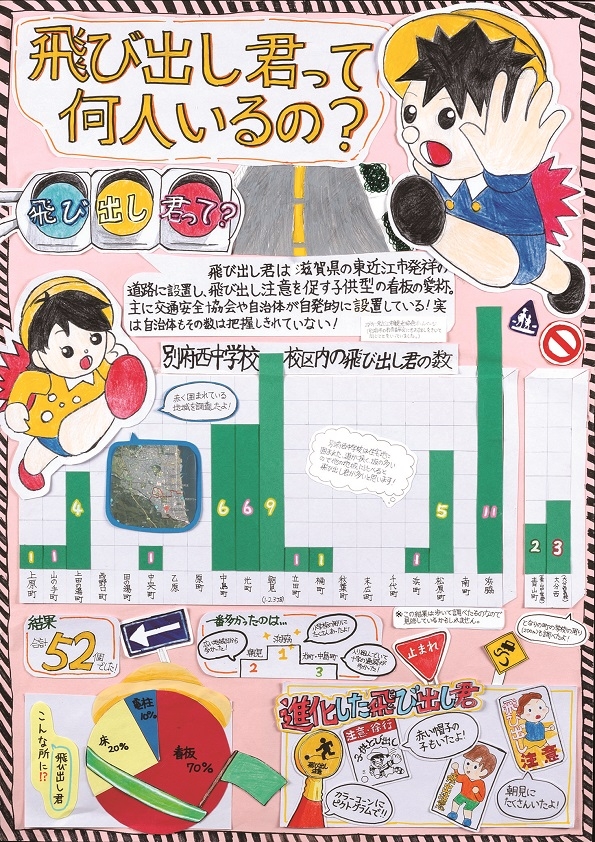 飛び出し君って
何人いるの？
飛び出し君って？
飛び出し君は滋賀県の東近江市発祥の
道路に設置し、飛び出し注意を促す子供型の看板の愛称。
主に交通安全協会や自治体が自発的に設置している！実
は自治体もその数は把握しきれていない！
別府西中学校 校区内の飛び出し君の数
赤く囲まれている
地域を調査したよ！
1
1
4
1
6
6
9
1
1
1
5
11
2
3
上原町
山の手町
上田の湯町
西野口町
田の湯町
中央町
乙原
原町
中島町
光町
朝見
(1.2.3
立田町
楠町
秋葉町
末広町
千代町
浜町
松原町
南町
浜脇
青山町
大分西
※この結果は歩いて調べたものなので
見逃しているかもしれません。
結果
合計
52個
でした！
一番多かったのは…
浜脇
朝見
光町・中島町
1
2
3
止まれ
こんな所に!?
飛び出し君
電柱
10%
床
20%
看板
70%
進化した飛び出し君
注意・徐行
飛び出し
注意
赤い帽子の
子もいたよ！
カラーコーンに
ピクトグラムで!!
飛び出し
注意
朝見に
たくさんいたよ！